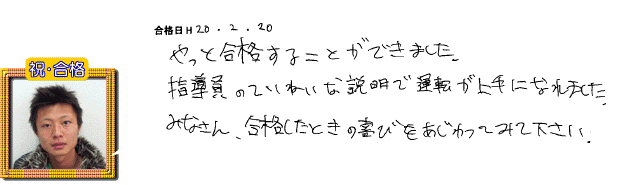 合格日 H20.2.20
やっと合格することができました。
祝・合格
指導員のていねいな説明で運転が上手になれました。
みなさん、合格したときの喜びをあじわってみて下さい。